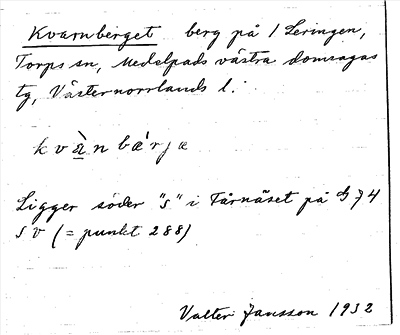 Kvarnberget berg på / Leringen,
Torps sn, Medelpads västra domsagas
tg, Västernorrlands l.
kvànbæ´rjæ
Ligger söder "s" i Tårnäset på G 74
SV (= punkt 288)
Valter Jansson 1932